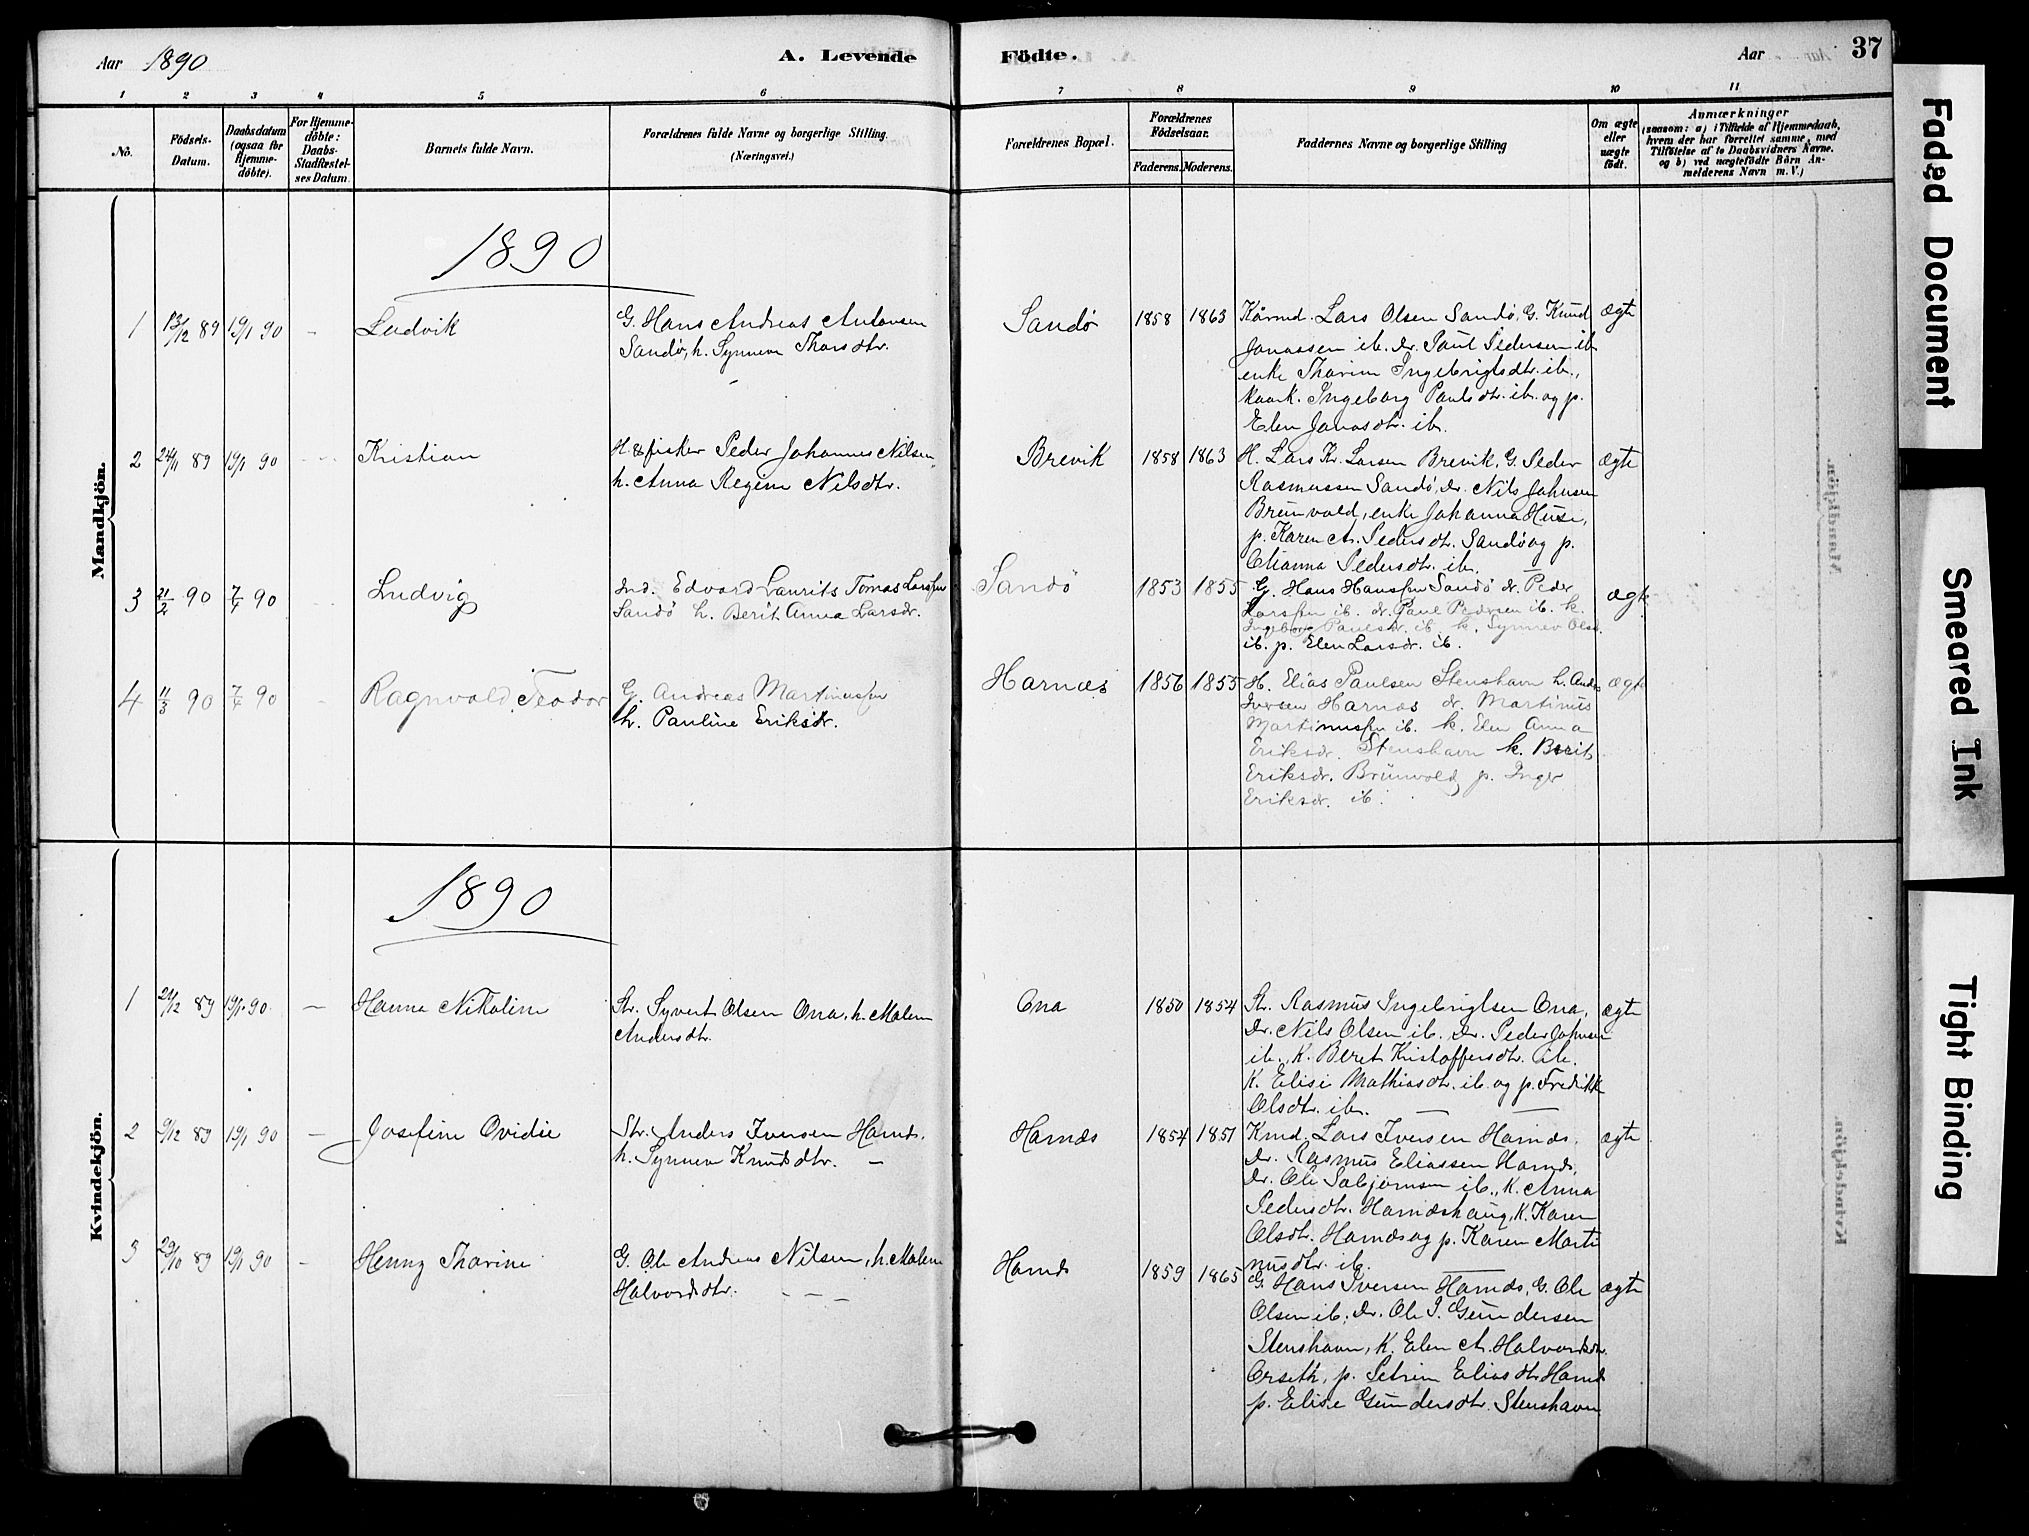 Aar 1890
A. Levende
Födte.
Aar
37
1 2 3 4 5 6 7 8 9 10 11
No.
Födsels-
Datum.
Daabsdatum
(ogsaa for
Hjemme-
döbte).
For Hjemme-
döbte:
Daabs-
Stadfæstel-
ses Datum.
Barnets fulde Navn.
Forældrenes fulde Navne og borgerlige Stilling.
(Næringsvei.)
Forældrenes Bopæl.
Forældrenes
Födselsaar.
Faderens. Moderens.
Faddernes Navne og borgerlige Stilling
Om ægte
eller
uægte
födt.
Anmærkninger
(saasom: a) i Tilfælde af Hjemmedaab,
hvem der har forrettet samme, med
Tilföielse af to Daabsvidners Navne.
og b) ved uægtefödte Börn An-
melderens Navn m. V.)
Mandkjön.
1890
1 13/12 89 19/1 90 - Ludvik
G. Hans Andreas Antonsen
Sandö, h. Synneva Thorsdtr.
Sandö 1858 1863
Kårmd. Lars Olsen Sandö, G. Knud
Janassen ib. dr. Paul Pedersen ib
enke Tharine Ingebrigtsdtr. ib.,
kaark. Ingeborg Paulsdtr. ib. og p.
Elen Janasdtr. ib.
ægte
2 24/11 89 19/1 90 Kristian
H. & fisker Peder Johannes Nilsen,
h. Anna Regine Nilsdtr.
Brevik 1858 1863
H. Lars Kr. Larsen Brevik, G. Peder
Rasmussen Sandö, dr. Nils Johnsen
Brunvold, enke Johanna Huse,
p. Karen A. Pedersdtr. Sandö og p.
Olianna Pedersdtr. ib.
ægte
3 21/2 90 7/4 90 Ludvig
Ind. Edvard Laurits Tomas Larssen
Sandö h. Berit Anna Larsdr.
Sandö 1853 1855
G. Hans Hanssen Sandö dr. Peder
Larssen ib. dr. Paul Pedersen ib. k.
Ingeborg Paulsdr. ib. k. Synnev Olsd.
ib. p. Elen Larsdr. ib.
ægte
4 11/3 90 7/4 90 Ragnvald Teodor
G. Andreas Martinussen
h. Pauline Eriksdr.
Harnæs 1856 1855
H. Elias Paulsen Stenshavn h. Anders
Iversen Harnæs dr. Martinus
Martinussen ib. k. Elen Anna
Eriksdr. Stenshavn k. Berit
Eriksdr. Brunvold, p. Inger
Eriksdr. ib.
ægte
Kvindekjön.
1890
1 21/12 89 19/1 90 - Hanna Nikoline
Str. Syvert Olsen Ona, h. Malene
Andersdtr.
Ona 1850 1854
Str. Rasmus Ingebrigtsen Ona,
dr. Nils Olsen ib. dr. Peder Johnsen
ib., K. Beret Kristoffersdtr. ib.
K. Elise Mathiasdtr. ib. og p. Fredrikk
Olsdtr. ib.
ægte
2 9/12 89 19/1 90 - Josefine Ovidie
Str. Anders Iversen Harnæs,
h. Synneva Knudsdtr. -
Harnæs 1854 1851
Kmd. Lars Iversen Harnæs,
dr. Rasmus Eliassen Harnæs,
dr. Ole Sabjørnsen ib., K. Anna
Pedersdtr. Harnæshaug, K. Karen
Olsdtr. Harnæs og p. Karen Marti
nusdtr. ib.
ægte
3 29/10 89 19/1 90 - Henny Tharine
G. Ole Andreas Nilsen, h. Malene
Halvordsdtr.
Harnæs 1859 1865
G. Hans Iversen Harnæs, G. Ole
Olsen ib. dr. Ole I. Gundersen
Stenshavn, K. Elen A. Halvordsdtr.
Orseth, p. Petrine Eliasdtr. Harnæs
p. Elise Gundersdtr. Stenshavn
ægte
Faded Document
Smeared Ink
Tight Binding